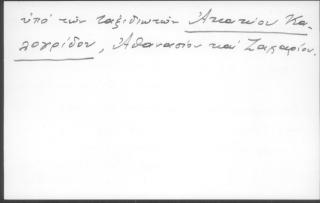 ὑπὸ τῶν ταξιδιωτῶν Ἀκακίου Κα-
λογρίδου, Ἀθανασίου καὶ Ζαχαρίου.